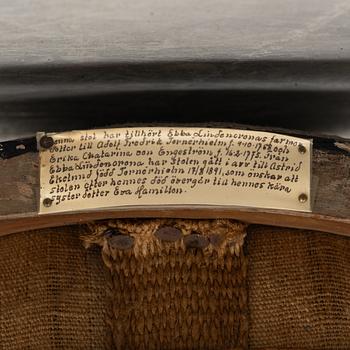 Denna stol har tillhört Ebba Lindencronas farmo
dotter till Adolf Fredrik Törnerhielm f. 4/10 1762 och
Erika Chatarina von Engeström f. 14/2 1775. Från
Ebba Lindencrona har Stolen gått i arv till Astrid
Ekelund född Törnérhielm 17/8 1891, som önskar att
stolen efter hennes död övergår till hennes kära
systerdotter Eva Hamilton.